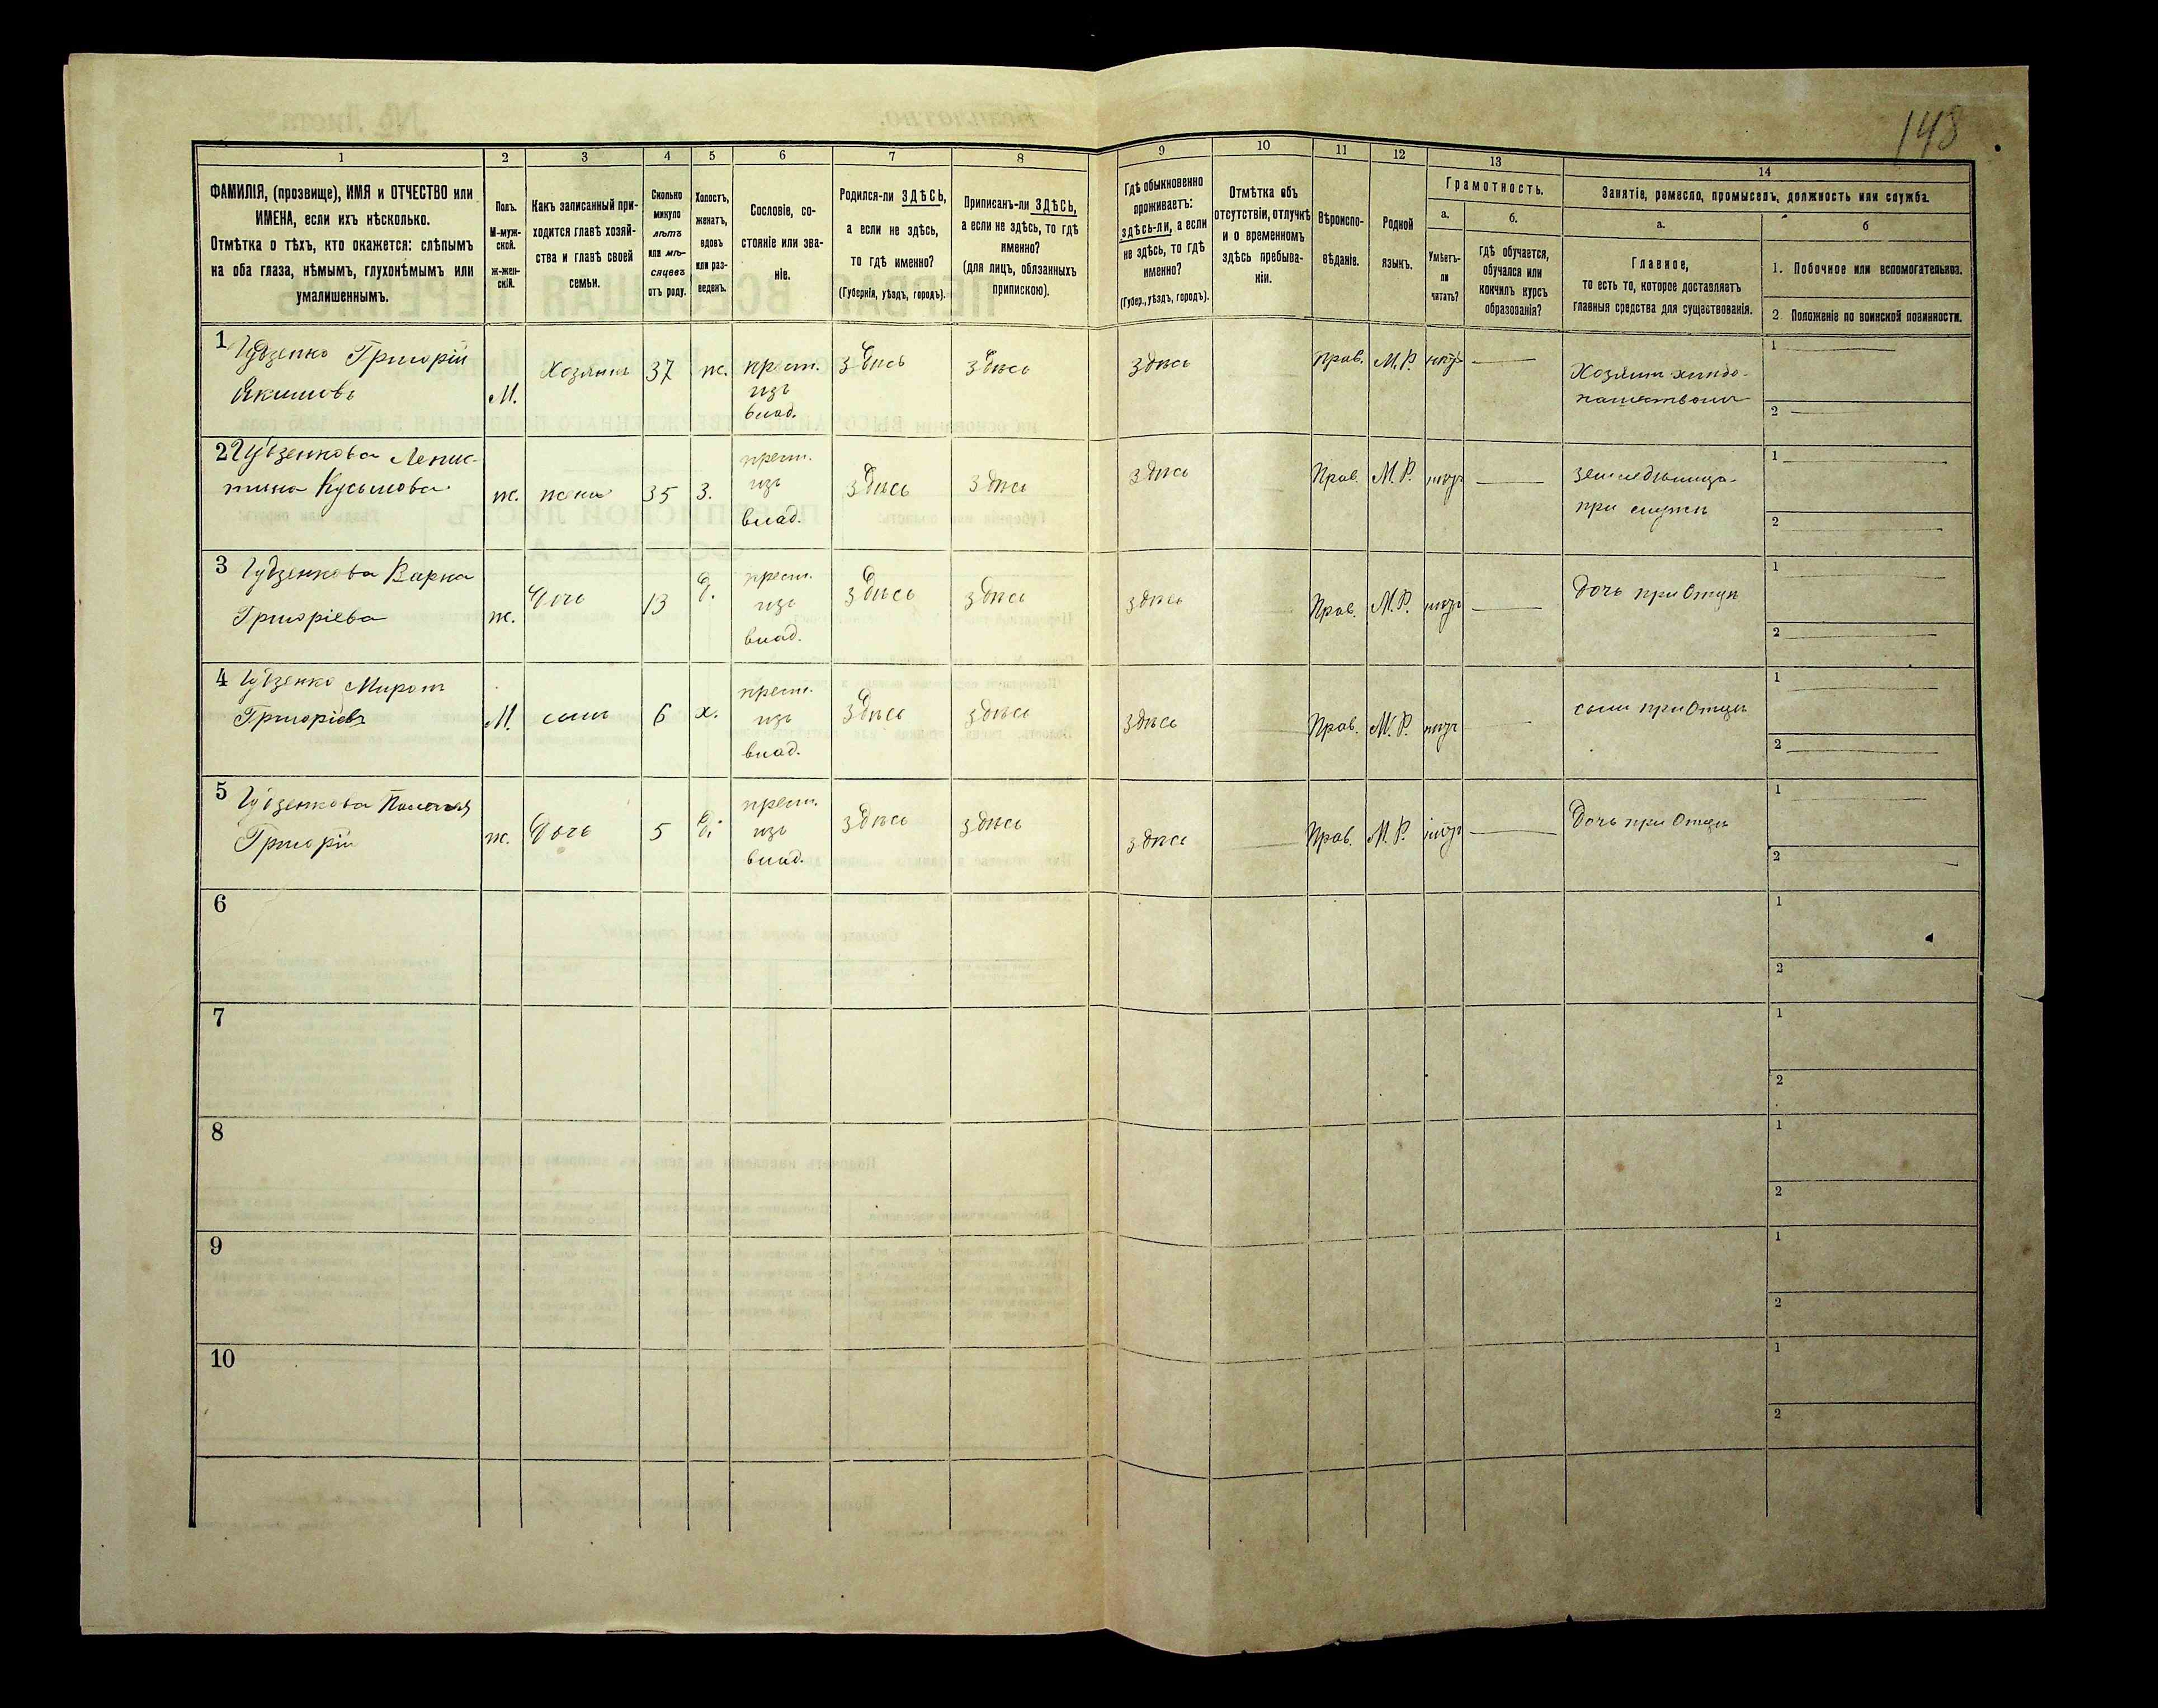 148
1 2 3 4 5 6 7 8 9 10 11 12 13 14
ФАМИЛІЯ, (прозвище), ИМЯ и ОТЧЕСТВО или
ИМЕНА, если ихъ нѣсколько.
Отмѣтка о тѣхъ, кто окажется: слѣпымъ
на оба глаза, нѣмымъ, глухонѣмымъ или
умалишеннымъ.
Полъ.
М-муж-
ской.
ж-жен-
скій.
Какъ записанный при-
ходится главѣ хозяй-
ства и главѣ своей
семьи.
Сколько
минуло
лѣтъ
или мѣ-
сяцевъ
отъ роду.
Холостъ,
женатъ,
вдовъ
или раз-
веденъ.
Сословіе, со-
стояніе или зва-
ніе.
Родился-ли ЗДѢСЬ,
а если не здѣсь,
то гдѣ именно?
(Губернія, уѣздъ, городъ).
Приписанъ-ли ЗДѢСЬ,
а если не здѣсь, то гдѣ
именно?
(для лицъ, обязанныхъ
припискою).
Гдѣ обыкновенно
проживаетъ:
здѣсь-ли, а если
не здѣсь, то гдѣ
именно?
(Губер., уѣздъ, городъ).
Отмѣтка объ
отсутствіи, отлучкѣ
и о временномъ
здѣсь пребыва-
ніи.
Вѣроиспо-
вѣданіе.
Родной
языкъ.
Грамотность.
а.
Умѣетъ-
ли
читать?
б.
Гдѣ обучается,
обучался или
кончилъ курсъ
образованія?
Занятіе, ремесло, промыселъ, должность или служба.
а.
Главное,
то есть то, которое доставляетъ
главныя средства для существованія.
б
1. Побочное или вспомогательное.
2 Положеніе по воинской повинности.
1 Гудзенко Григорій
Якимовъ
М.
Хозяинъ
37
ж.
крест.
изъ
влад.
здѣсь
здѣсь
здѣсь
Прав.
М.Р.
нѣтъ
Хозяинъ хлѣбо-
пашествомъ
1
2
2 Гудзенкова
Кузьмова
ж.
жена
35
З.
крест.
изъ
влад.
здѣсь
здѣсь
здѣсь
Прав.
М.Р.
нѣтъ
при
1
2
3 Гудзенкова Варка
Григоріева
ж.
Дочь
13
Д.
крест.
изъ
влад.
здѣсь
здѣсь
здѣсь
Прав.
М.Р.
нѣтъ
Дочь при Отцѣ
1
2
4 Гудзенко Миронъ
Григоріевъ
М.
сынъ
6
х.
крест.
изъ
влад.
здѣсь
здѣсь
здѣсь
Прав.
М.Р.
нѣтъ
сынъ при Отцѣ
1
2
5 Гудзенкова
Григорій
ж.
Дочь
5
Д.
крест.
изъ
влад.
здѣсь
здѣсь
здѣсь
Прав.
М.Р.
нѣтъ
Дочь при Отцѣ
1
2
6
1
2
7
1
2
8
1
2
9
1
2
10
1
2